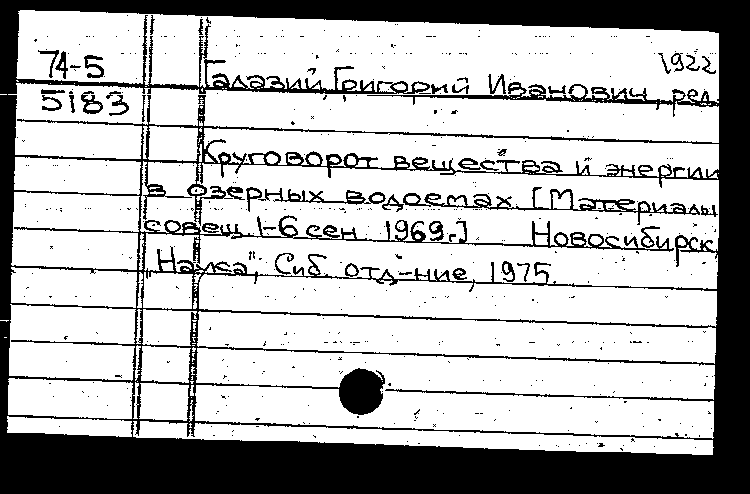 1922
74-5 Галазий, Григорий Иванович, ред.
5183
Круговорот вещества и энергии
в озерных водоемах. [Материалы
совещ. 1-6 сен. 1969г.] Новосибирск,
"Наука", Сиб. отд-ние, 1975.